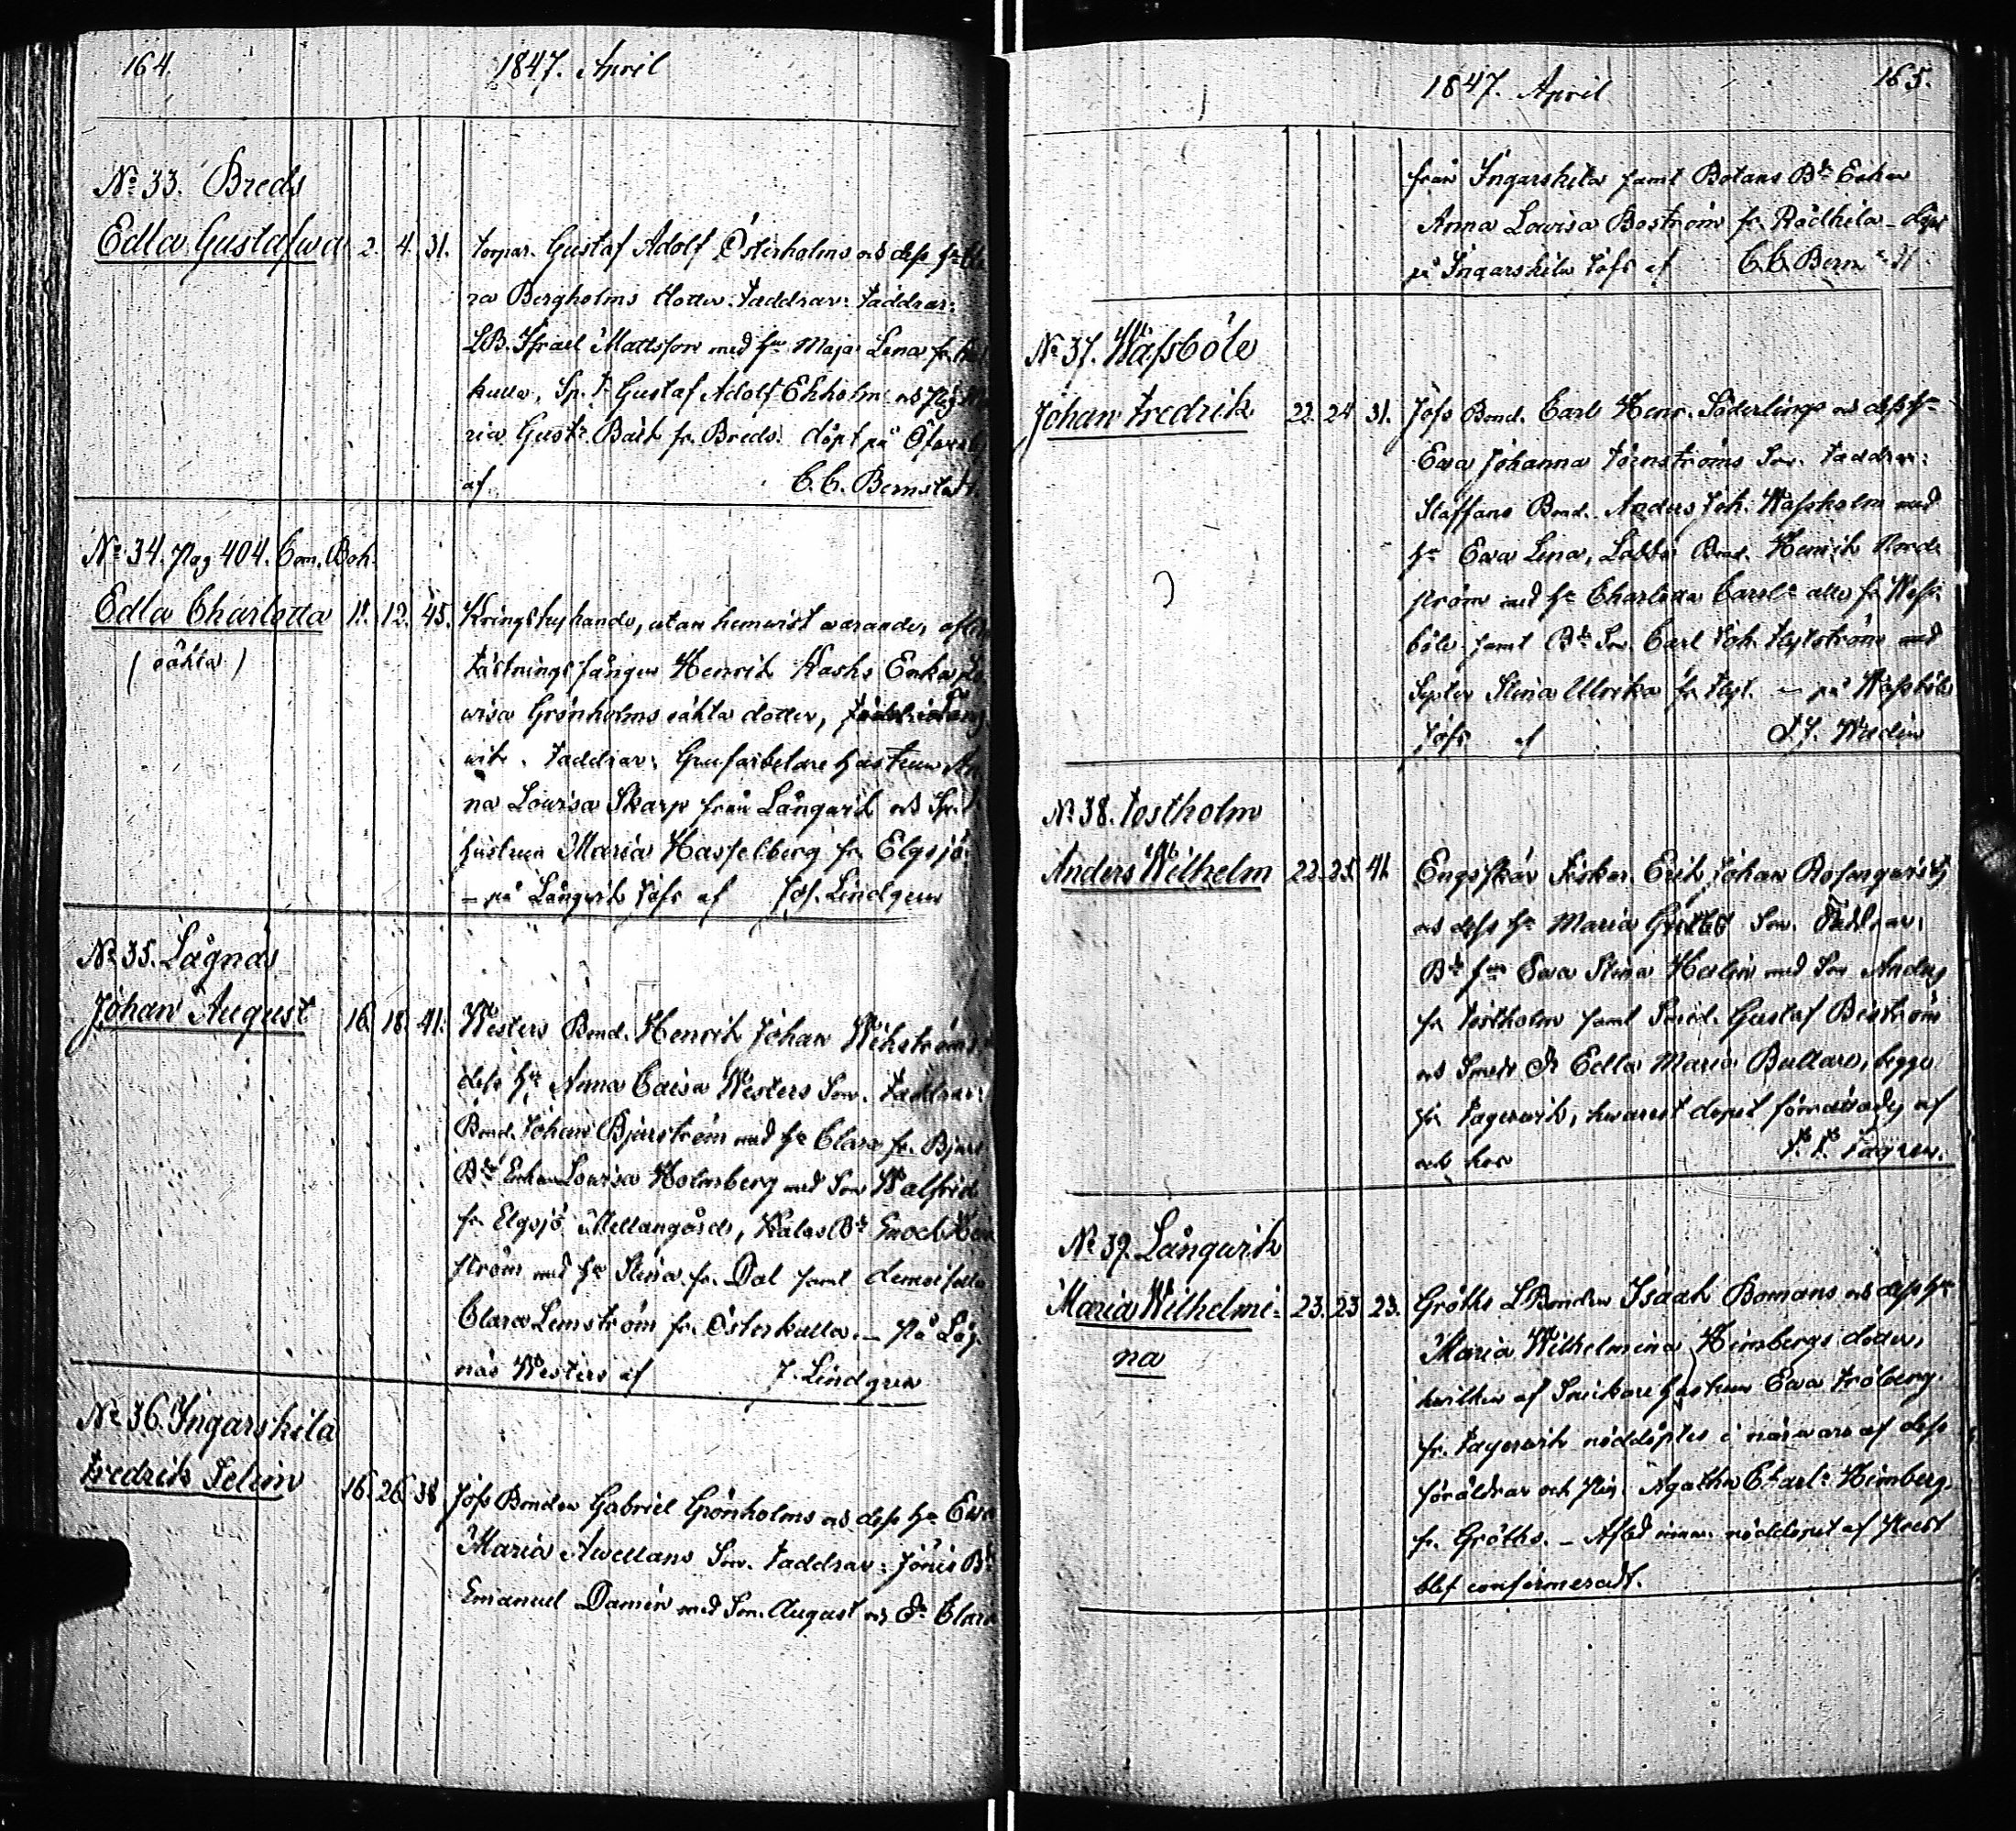 164.
1847. April
No 33. Breds
Edla Gustafwa 2. 4. 31. torpar. Gustaf Adolf Österholms och dess
ra Bergholms dotter. Faddrar: Faddrar:
LB. Israel Mattsson med hu Maja Lena fr.
kulla, Sp. Gustaf Adolf Ekholm och Pig.
ria Gust: Bäck fr. Breds. döpt på
af C. C. Bernstadt.
No 34. pag 404. Com. Bok.
Edla Charlotta 11. 12. 45. Kringstrykande, utan hemvist warande,
(oäkta) Fästningsfången Henrik Kashs Enkas
wisa Grönholms oäkta dotter,
wik. Faddrar: Grufarbetare hustrun An
na Lowisa Skarp från Långwik och
hustrun Maria Hasselberg fr. Elgsjö.
– på Långwik Jofs af Jos. Lindgren
No 35. Lågnäs
Johan August 16. 18. 41. Westers Bond. Henrik Johan Wikströms
dess hu Anna Caisa Westers Son. Faddrar:
Bond. Johan Bjurström med hu Clara fr. Bjurs
Bde Enkan Lowisa Holmberg med Son Walfrid
fr. Elgsjö Mellangårds, Kalas Bde Enoch
ström med hu Stina fr. Dal samt demoiselle
Clara Lemström fr. Österkulla. – på Låg-
näs Westers af J. Lindgren
No 36. Ingarskila
Fredrik Selim 16. 26. 38 Jofs Bonden Gabriel Grönholms och dess hu Ewa
Maria Awellans Son. Faddrar: Jönis Bde
Emanuel Damén med Son August och Dr Clara
1847. April
165.
från Ingarskila samt Botans Bde Enkan
Anna Lowisa Boström fr. Rådkila – döpt
på Ingarskila Jofs af C. C. Bern
No 37. Wässböle
Johan Fredrik 22. 24 31. Jofs Bond. Carl Henr. Söderlings och dess hu
Ewa Johanna Törnströms Son. Faddrar:
Staffans Bond. Anders Joh. Wassholm med
hu Ewa Lena, Labbas Bond. Henrik Nord-
ström med hu Charlotta Carol: alla fr. Wäss-
böle samt Bde Son Carl Joh. Flytström med
Syster Stina Ulrika fr. Flyt. – på Wässböle
Jofs af F. J. Wadén
No 38. Tostholm
Anders Wilhelm 22. 25. 41. Engisskär Fisker. Erik Johan Rosenqwists
och dess hu Maria Son. Faddrar:
Bde hu Ewa Stina Hedin med Son Anders
fr. Tostholm samt Smed. Gustaf Boström
och Smeds Dr Edla Maria Ballare, begge
fr. Fagerwik, hwarest dopet förrättades af
och hos F. F. Fagren.
No 39. Långwik
Maria Wilhelmi- 23. 23 23. Gröths LBonden Isaak Bomans och dess hu
na Maria Wilhelmina Heimbergs dotter,
hwilken af Snickare hustrun Ewa Fröberg
fr. Fagerwik nöddöptes i närwaro af dess
föräldrar och Pig. Agatha Charl: Heimberg
fr. Gröths. – Afled innan nöddopet af Prest
blef confirmeradt.